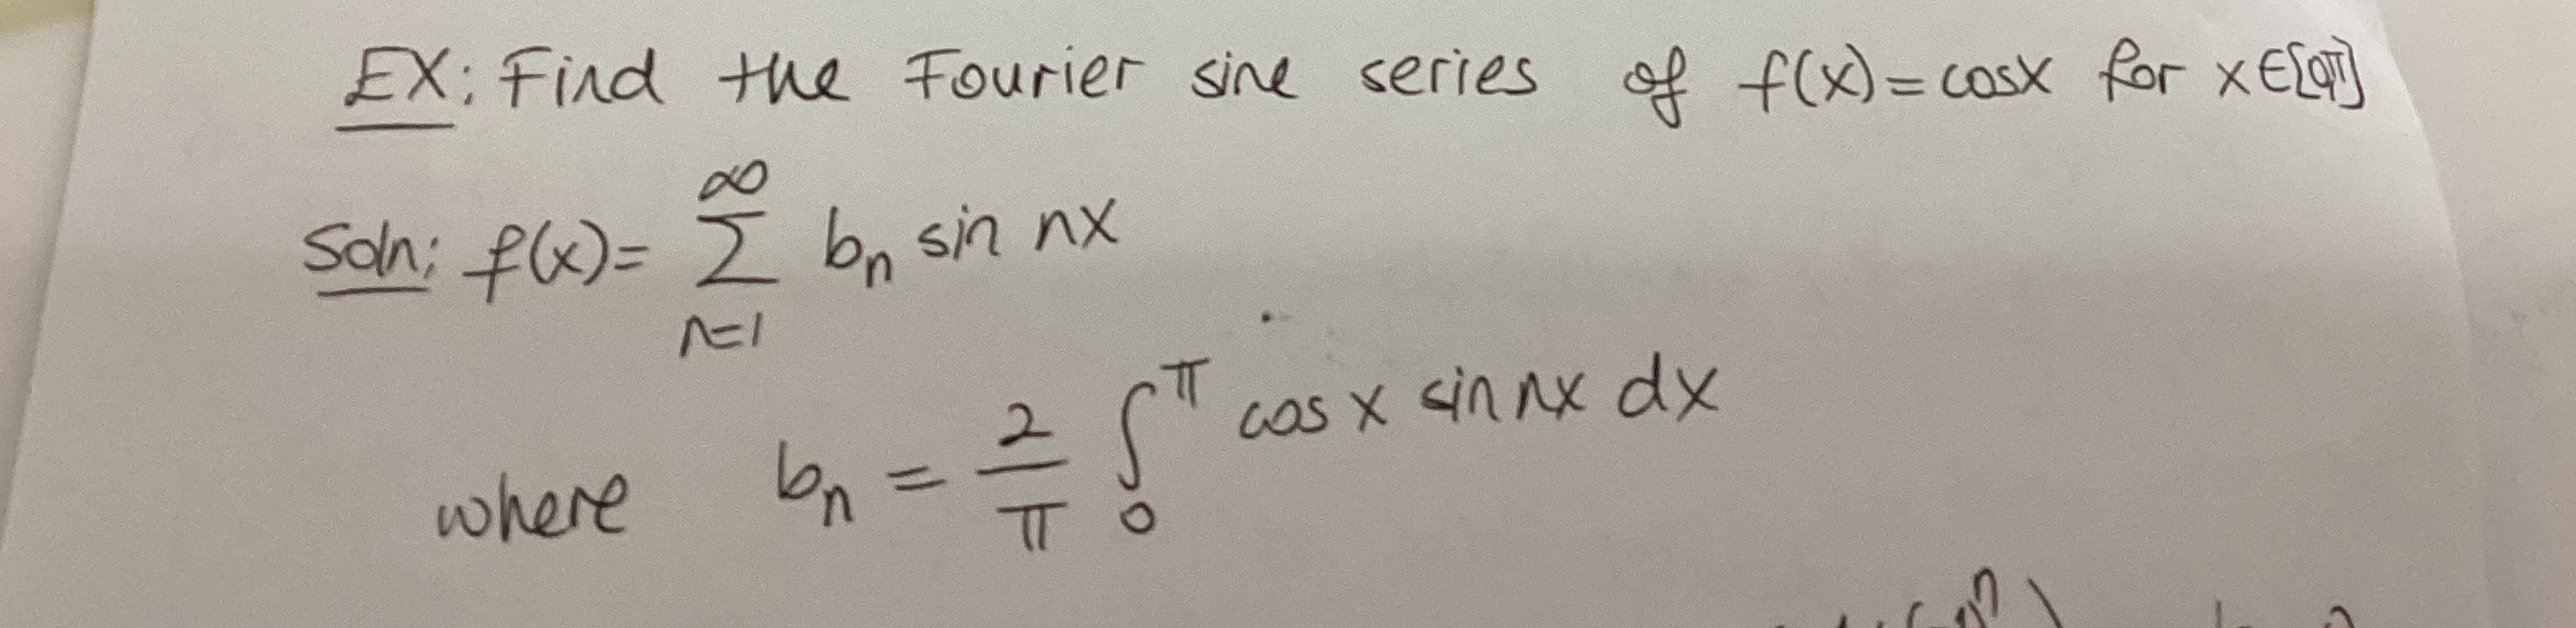 EX: Find the Fourier sine series of f(x)=cosx for x∈[0,π]
Soln: f(x)= ∑_{n=1}^{∞} b_n sin nx
where b_n = \frac{2}{π} ∫_0^π cos x sin nx dx